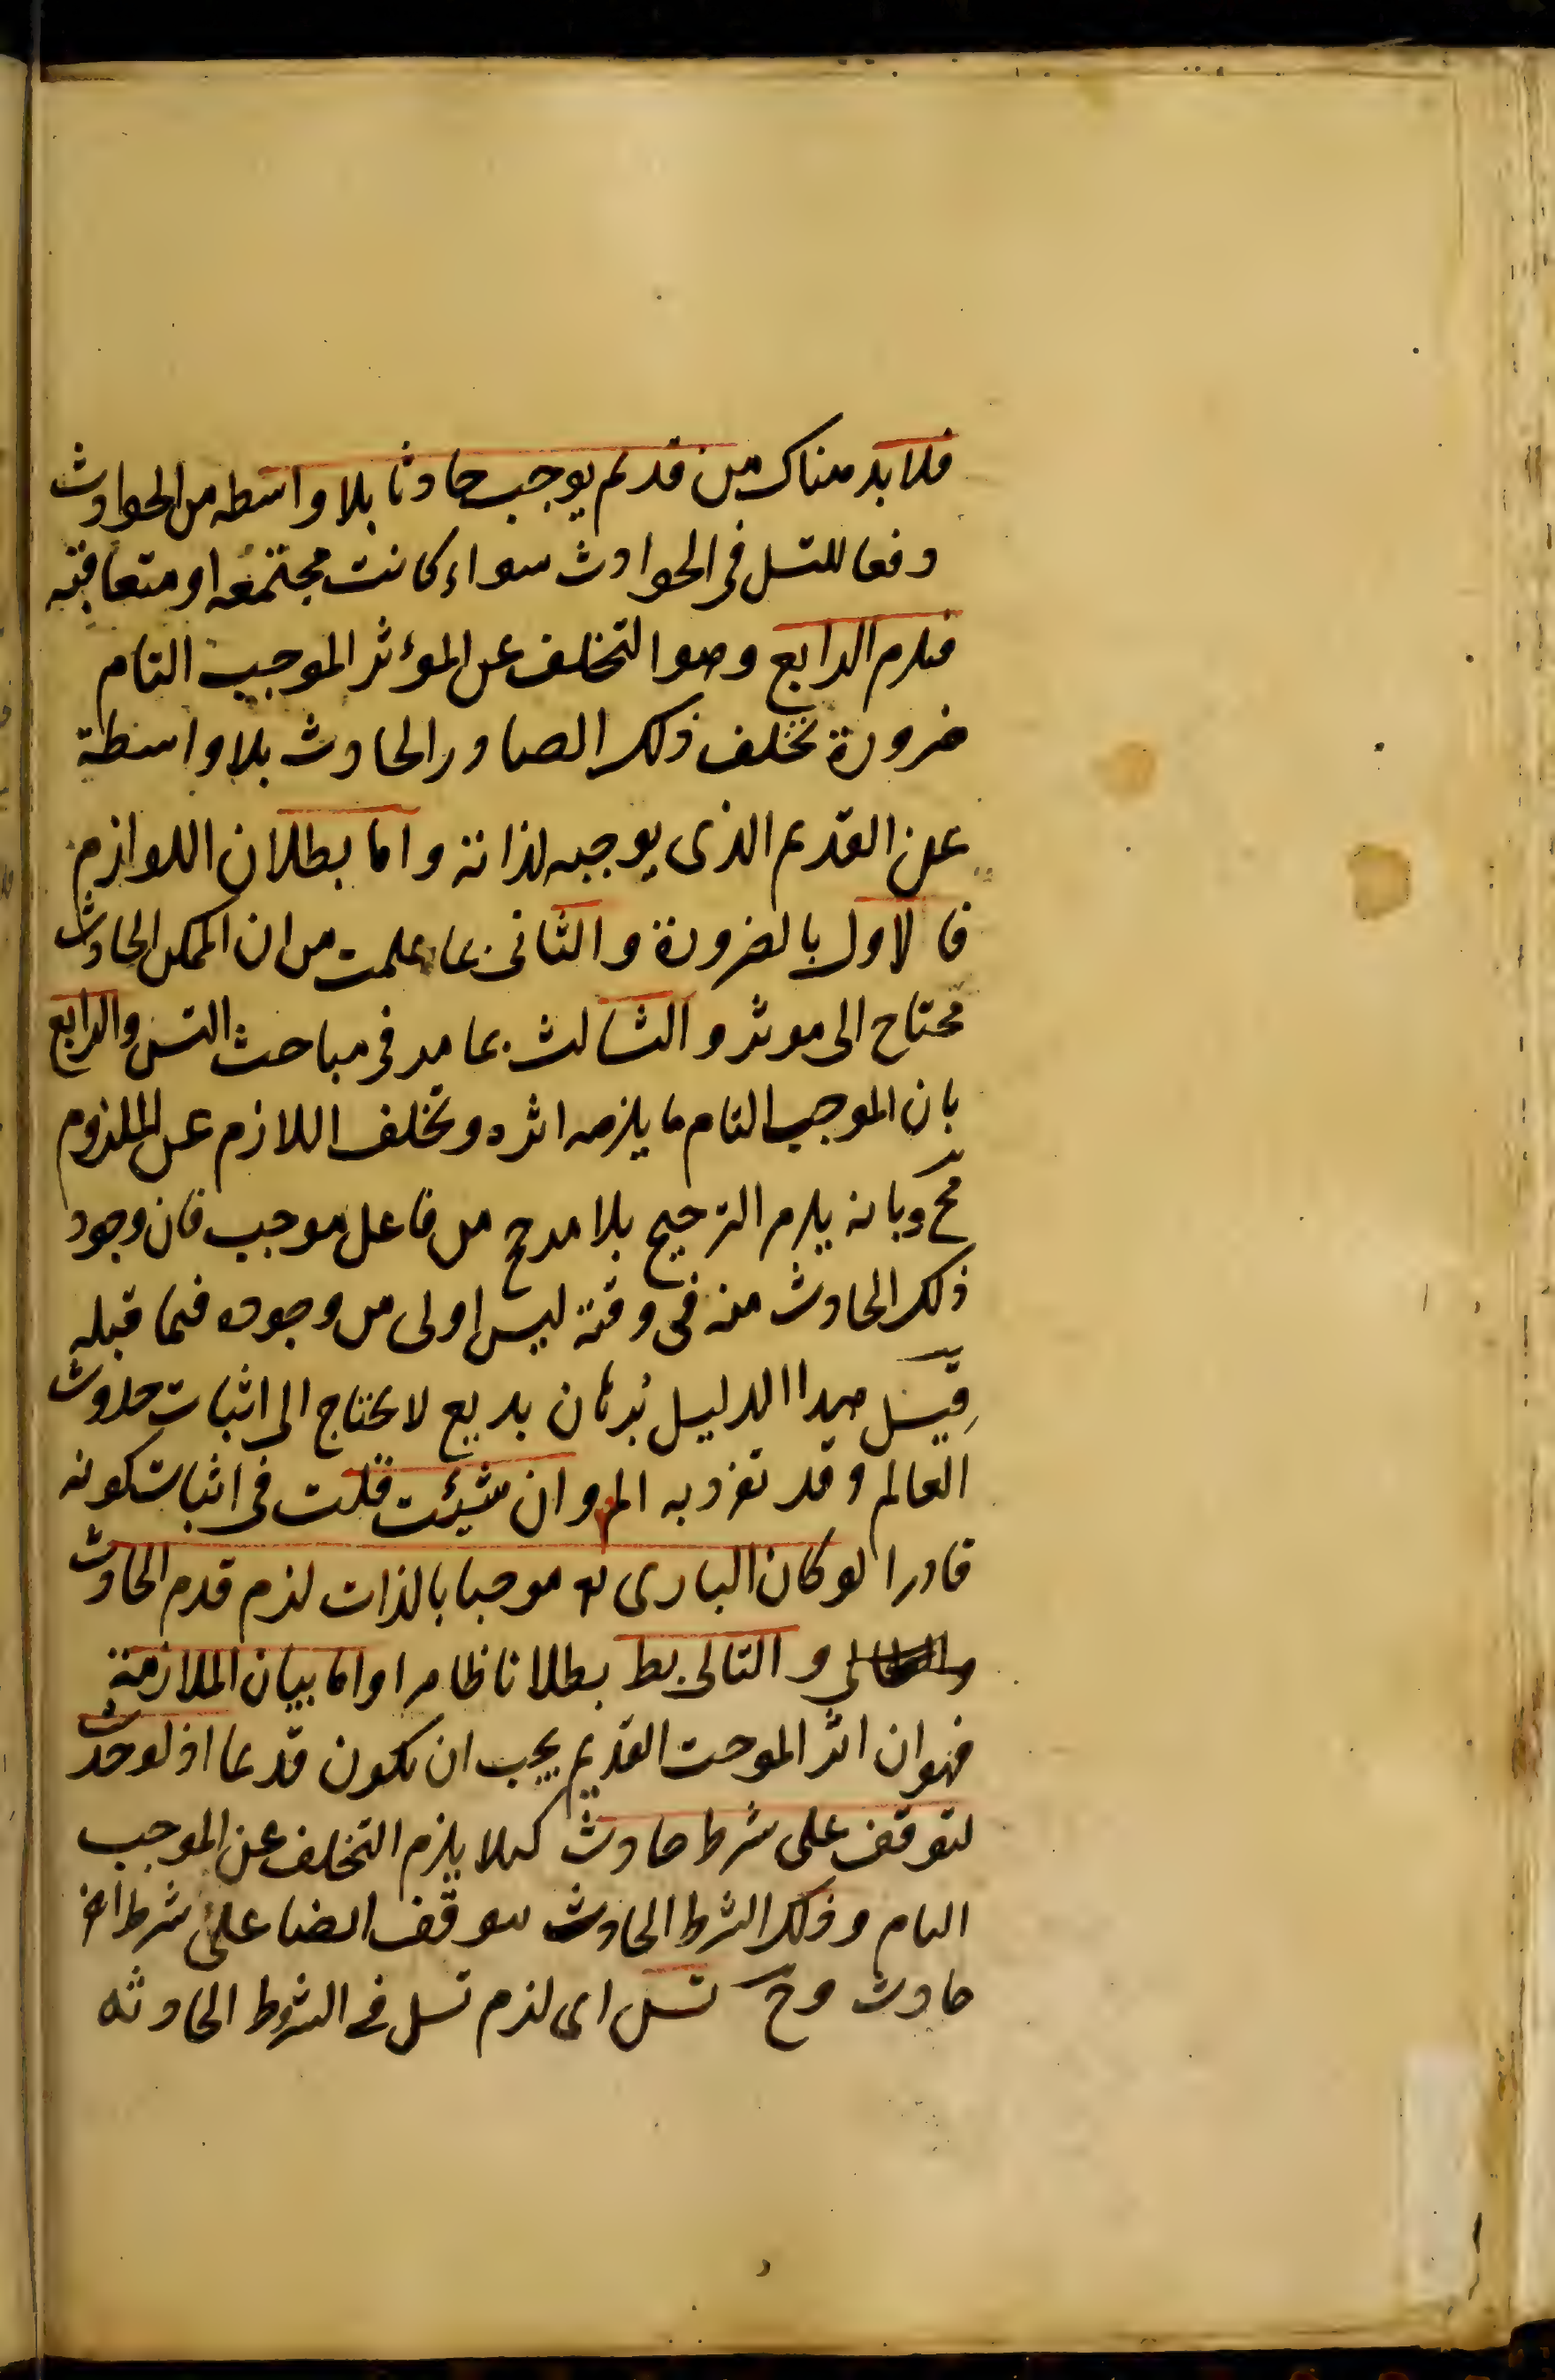 فلا بد هناك من قديم يوجب حادثا بلا واسطه من الحوادث
دفعا للتسل فى الحوادث سواء كانت مجتمعه او متعاقبه
فيلزم الرابع وهو التخلف عن المؤثر الموجب التام
ضرورة تخلف ذلك الصادر الحادث بلا واسطة
عن القديم الذى يوجبه لذاته واما بطلان اللوازم
فالاول بالضرورة والثانى بما علمت من ان الممكن الحادث
محتاج الى موثر والثالث بما مر فى مباحث التس والرابع
بان الموجب التام ما يلزمه اثره وتخلف اللازم عن الملزوم
مح وبانه يلزم الترجيح بلا مرجح من فاعل موجب فان وجود
ذلك الحادث منه فى وقته ليس اولى من وجوده فيما قبله
قيل هذا الدليل برهان بديع لا يحتاج الى اثبات حدوث
العالم وقد تفرد به المص وان شيئت قلت فى اثبات كونه
قادرا لو كان البارى تع موجبا بالذات لزم قدم الحادث
والتالى بط بطلانا ظاهرا واما بيان الملازمة
فهو ان اثر الموجب القديم يجب ان يكون قديما اذ لو حدث
لتوقف على شرط حادث كيلا يلزم التخلف عن الموجب
التام وذلك الشرط الحادث يتوقف ايضا على شرط اخر
حادث وح تسل اى لزم تسل فى الشروط الحادثه